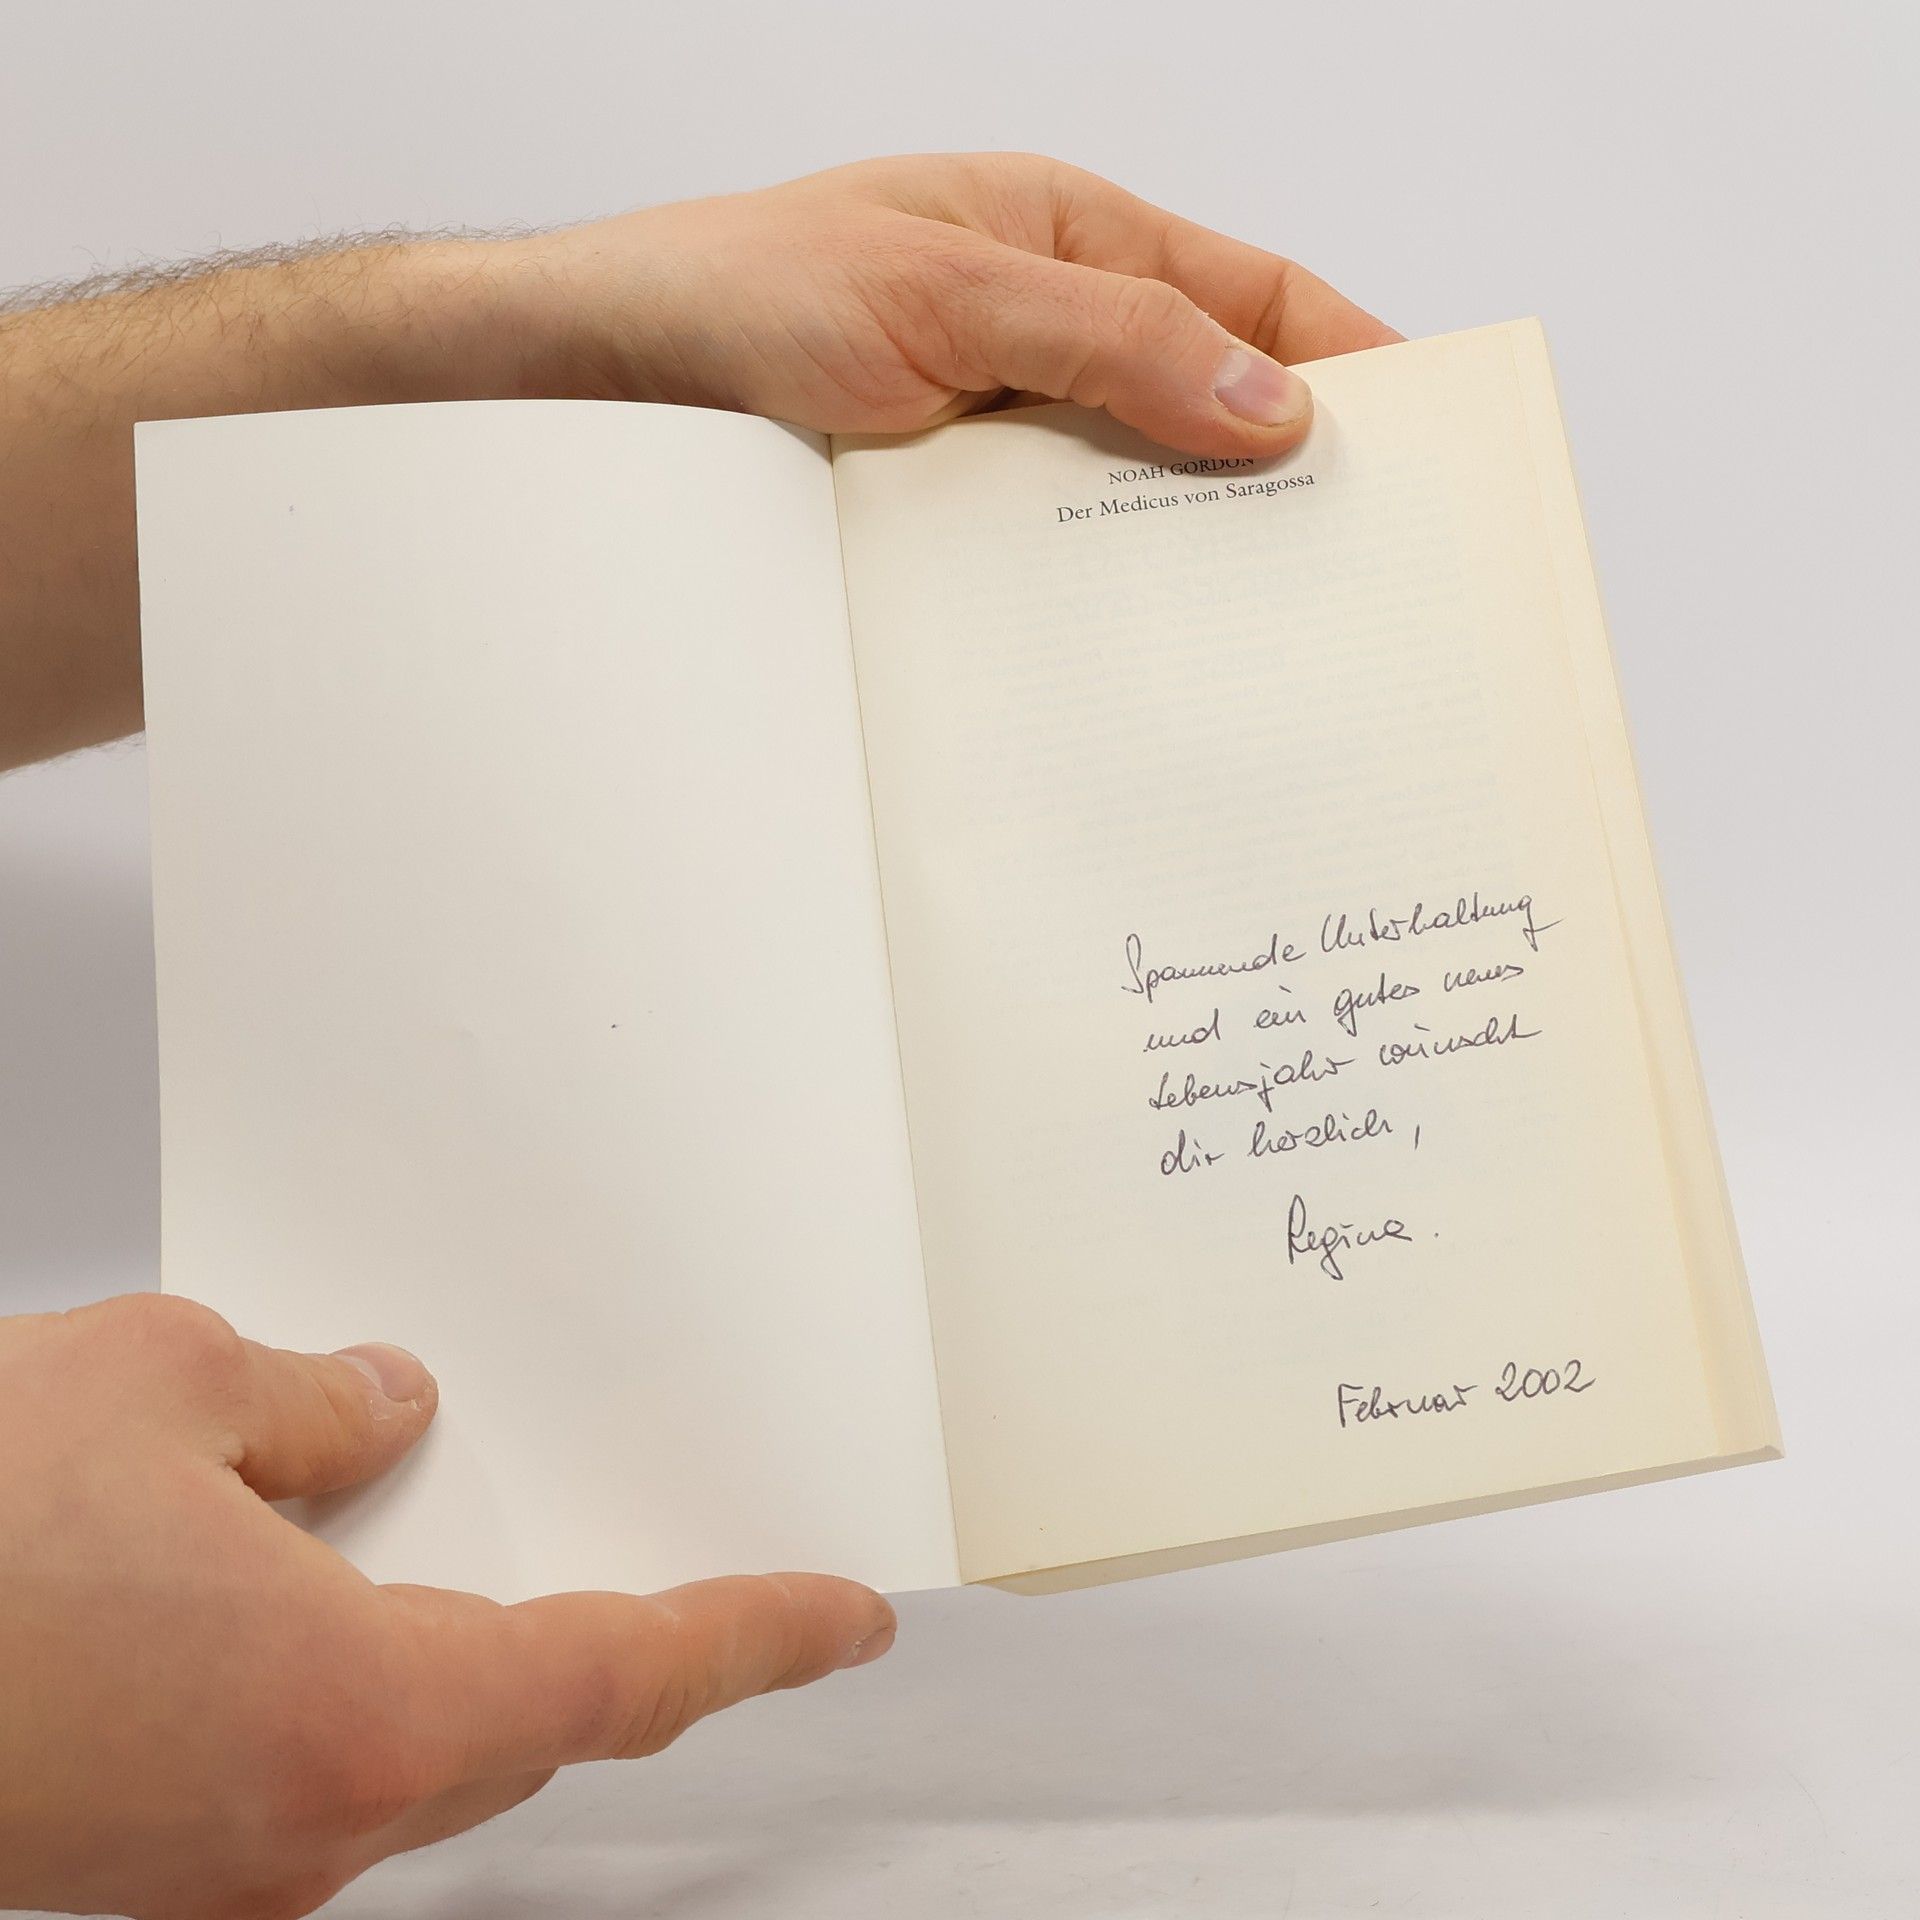 NOAH GORDON
Der Medicus von Saragossa
Spannende Unterhaltung
und ein gutes neues
Lebensjahr wünscht
dir herzlich,
Regina.
Februar 2002